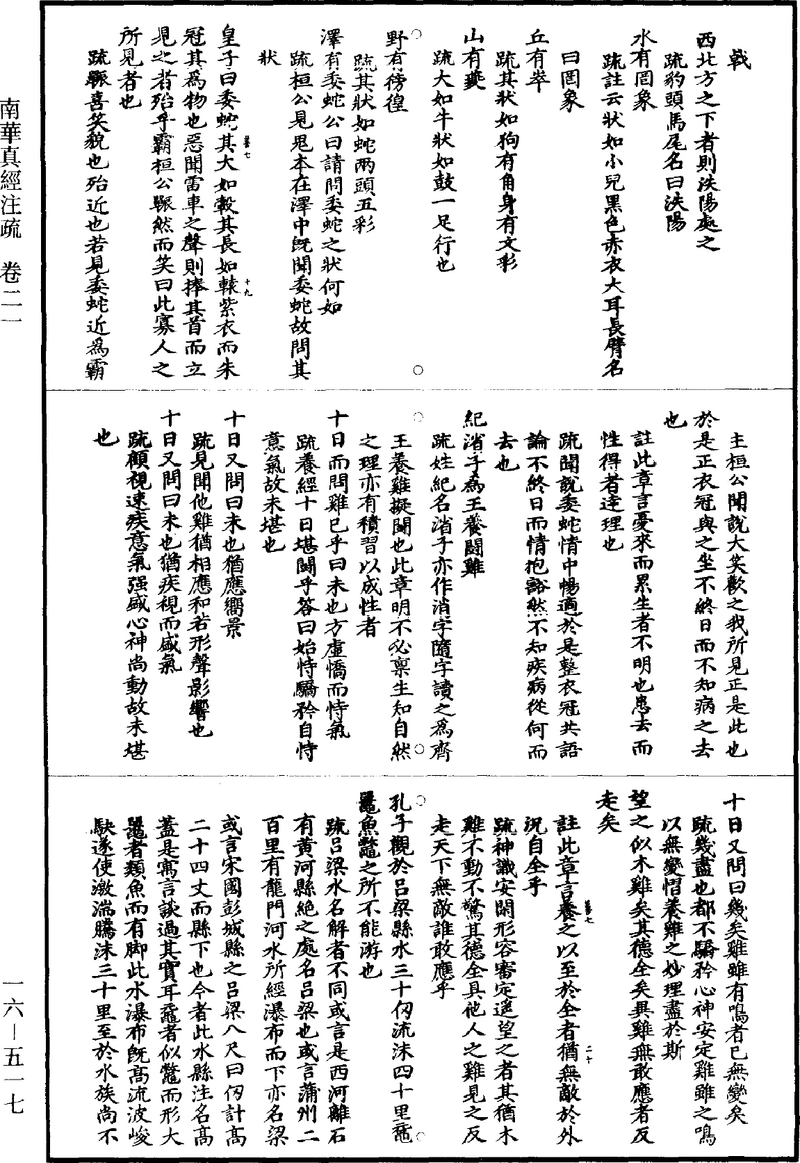 南華真經注疏　卷二一
一六—五一七
戟
西北方之下者則泆陽處之
疏豹頭馬尾名曰泆陽
水有罔象
疏註云狀如小兒黑色赤衣大耳長臂名
曰罔象
丘有峷
疏其狀如狗有角身有文彩
山有夔
疏大如牛狀如鼓一足行也
野有徬徨
疏其狀如蛇兩頭五彩
澤有委蛇公曰請問委蛇之狀何如
疏桓公見鬼本在澤中既聞委蛇故問其
狀
皇子曰委蛇其大如轂其長如轅紫衣而朱
冠其為物也惡聞雷車之聲則捧其首而立
見之者殆乎霸桓公辴然而笑曰此寡人之
所見者也
疏辴喜笑貌也殆近也若見委蛇近為霸
主桓公聞說大笑歡之我所見正是此也
於是正衣冠與之坐不終日而不知病之去
也
註此章言憂來而累生者不明也患去而
性得者達理也
疏聞說委蛇情中暢適於是整衣冠共語
論不終日而情抱豁然不知疾病從何而
去也
紀渻子為王養鬪雞
疏姓紀名渻子亦作消字隨字讀之為齊
王養雞擬鬪也此章明不必稟生知自然
之理亦有積習以成性者
十日而問雞已乎曰未也方虛憍而恃氣
疏養經十日堪鬪乎答曰始恃驕矜自恃
意氣故未堪也
十日又問曰未也猶應嚮景
疏見聞他雞猶相應和若形聲影響也
十日又問曰未也猶疾視而盛氣
疏顧視速疾意氣强盛心神尚動故未堪
也
十日又問曰幾矣雞雖有鳴者已無變矣
疏幾盡也都不驕矜心神安定雞雖之鳴
以無變慴養雞之妙理盡於斯
望之似木雞矣其德全矣異雞無敢應者反
走矣
註此章言養之以至於全者猶無敵於外
況自全乎
疏神識安閑形容審定遥望之者其猶木
雞不動不驚其德全具他人之雞見之反
走天下無敵誰敢應乎
孔子觀於吕梁縣水三十仞流沫四十里黿
鼉魚鼈之所不能游也
疏吕梁水名解者不同或言是西河離石
有黃河縣絕之處名吕梁也或言蒲州二
百里有龍門河水所經瀑布而下亦名梁
或言宋國彭城縣之吕梁八尺曰仞計高
二十四丈而縣下也今者此水縣注名高
蓋是寓言談過其實耳黿者似鼈而形大
鼉者類魚而有脚此水瀑布既高流波峻
駛遂使激湍騰沫三十里至於水族尚不